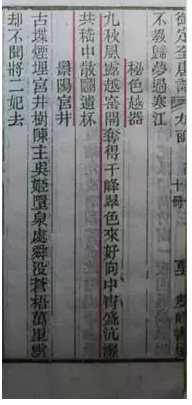 不教歸夢過寒江
秘色越器
九秋風露越窯開奪得千峰翠色來好向中宵盛沆瀣
共嵇中散鬭遺杯
景陽宮井
古堞煙埋宮井樹陳主吳姬墮泉處舜没蒼梧萬里雲
却不聞將二妃去